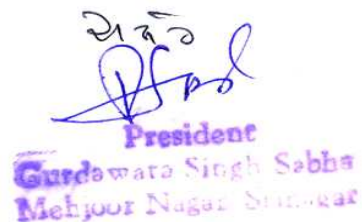 President
Gurdawara Singh Sabha
Mehjoor Nagar Srinagar